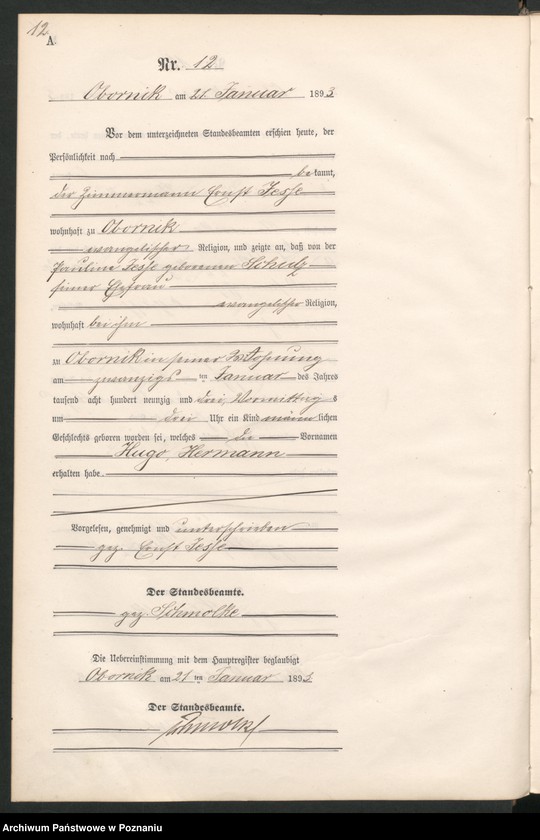 12
A.
Nr. 12
Obornik am 21. Januar 1893
Vor dem unterzeichneten Standesbeamten erschien heute, der
Persönlichkeit nach
bekannt,
der Zimmermann Ernst Jesse
wohnhaft zu Obornik
evangelischer Religion, und zeigte an, daß von der
Pauline Jesse geborenen Schulz
seiner Ehefrau
evangelischer Religion,
wohnhaft bei ihm
zu Obornik in seiner Wohnung
am zwanzigsten Januar des Jahres
tausend acht hundert neunzig und drei Vormittags
um drei Uhr ein Kind männlichen
Geschlechts geboren worden sei, welches die Vornamen
Hugo, Hermann
erhalten habe.
Vorgelesen, genehmigt und unterschrieben
gez. Ernst Jesse
Der Standesbeamte.
gez. Schmolke
Die Uebereinstimmung mit dem Hauptregister beglaubigt
Obornik am 21 ten Januar 1893
Der Standesbeamte.
Schmolke
Archiwum Państwowe w Poznaniu